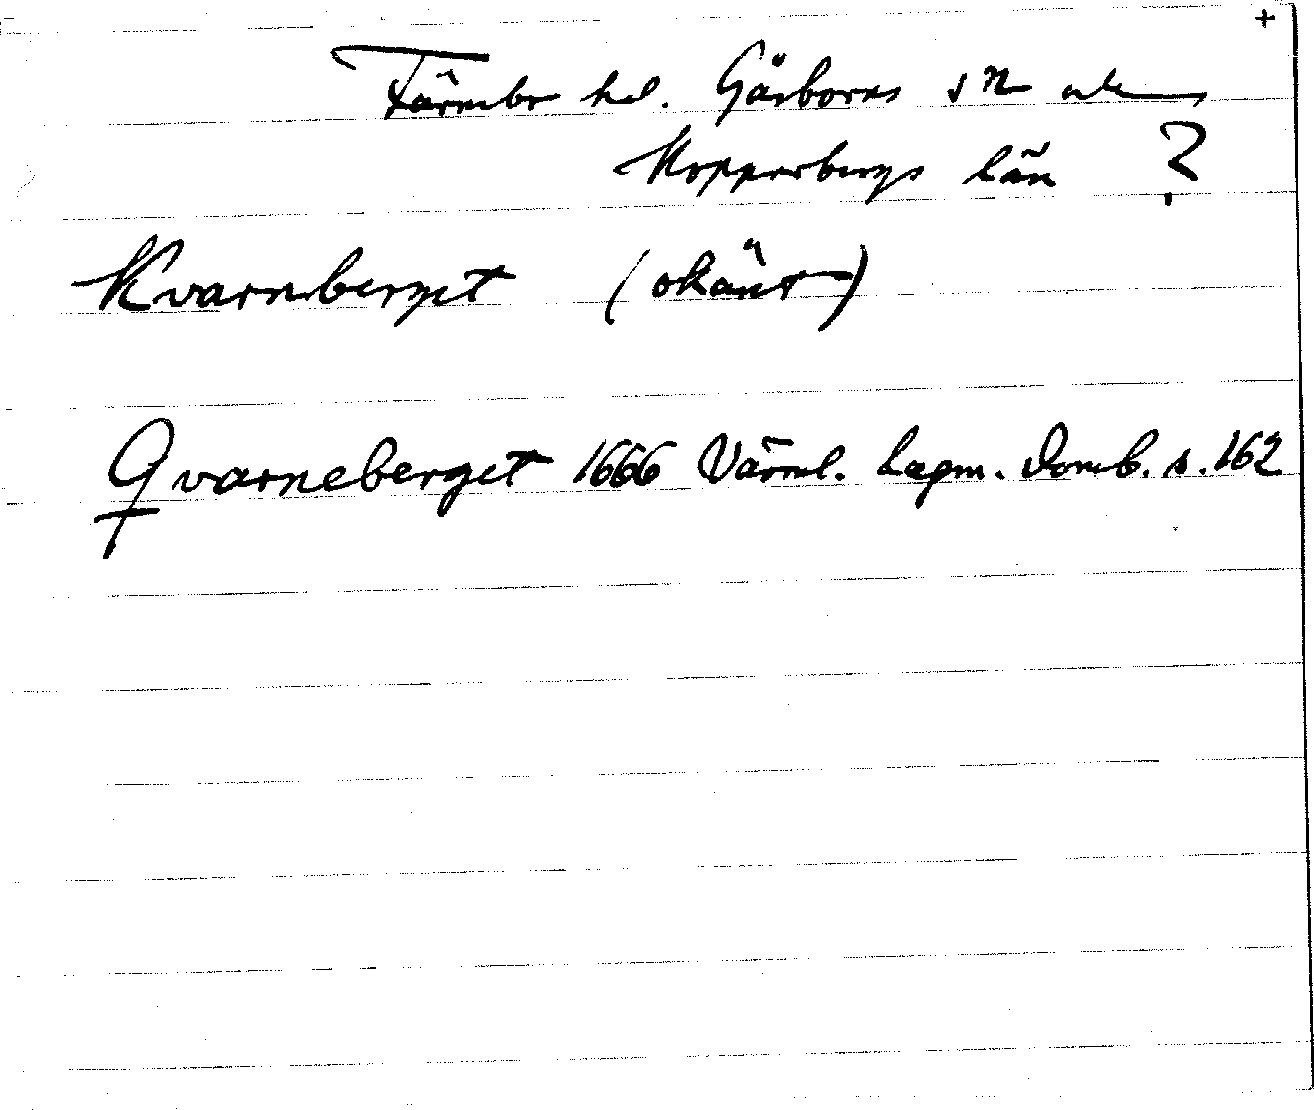 +
Färnebo hd. Gåsborns sn
Kopparbergs län ?
Kvarnberget (okänt)
Qvarneberget 1666 Värml. Lagm. Domb. s. 162